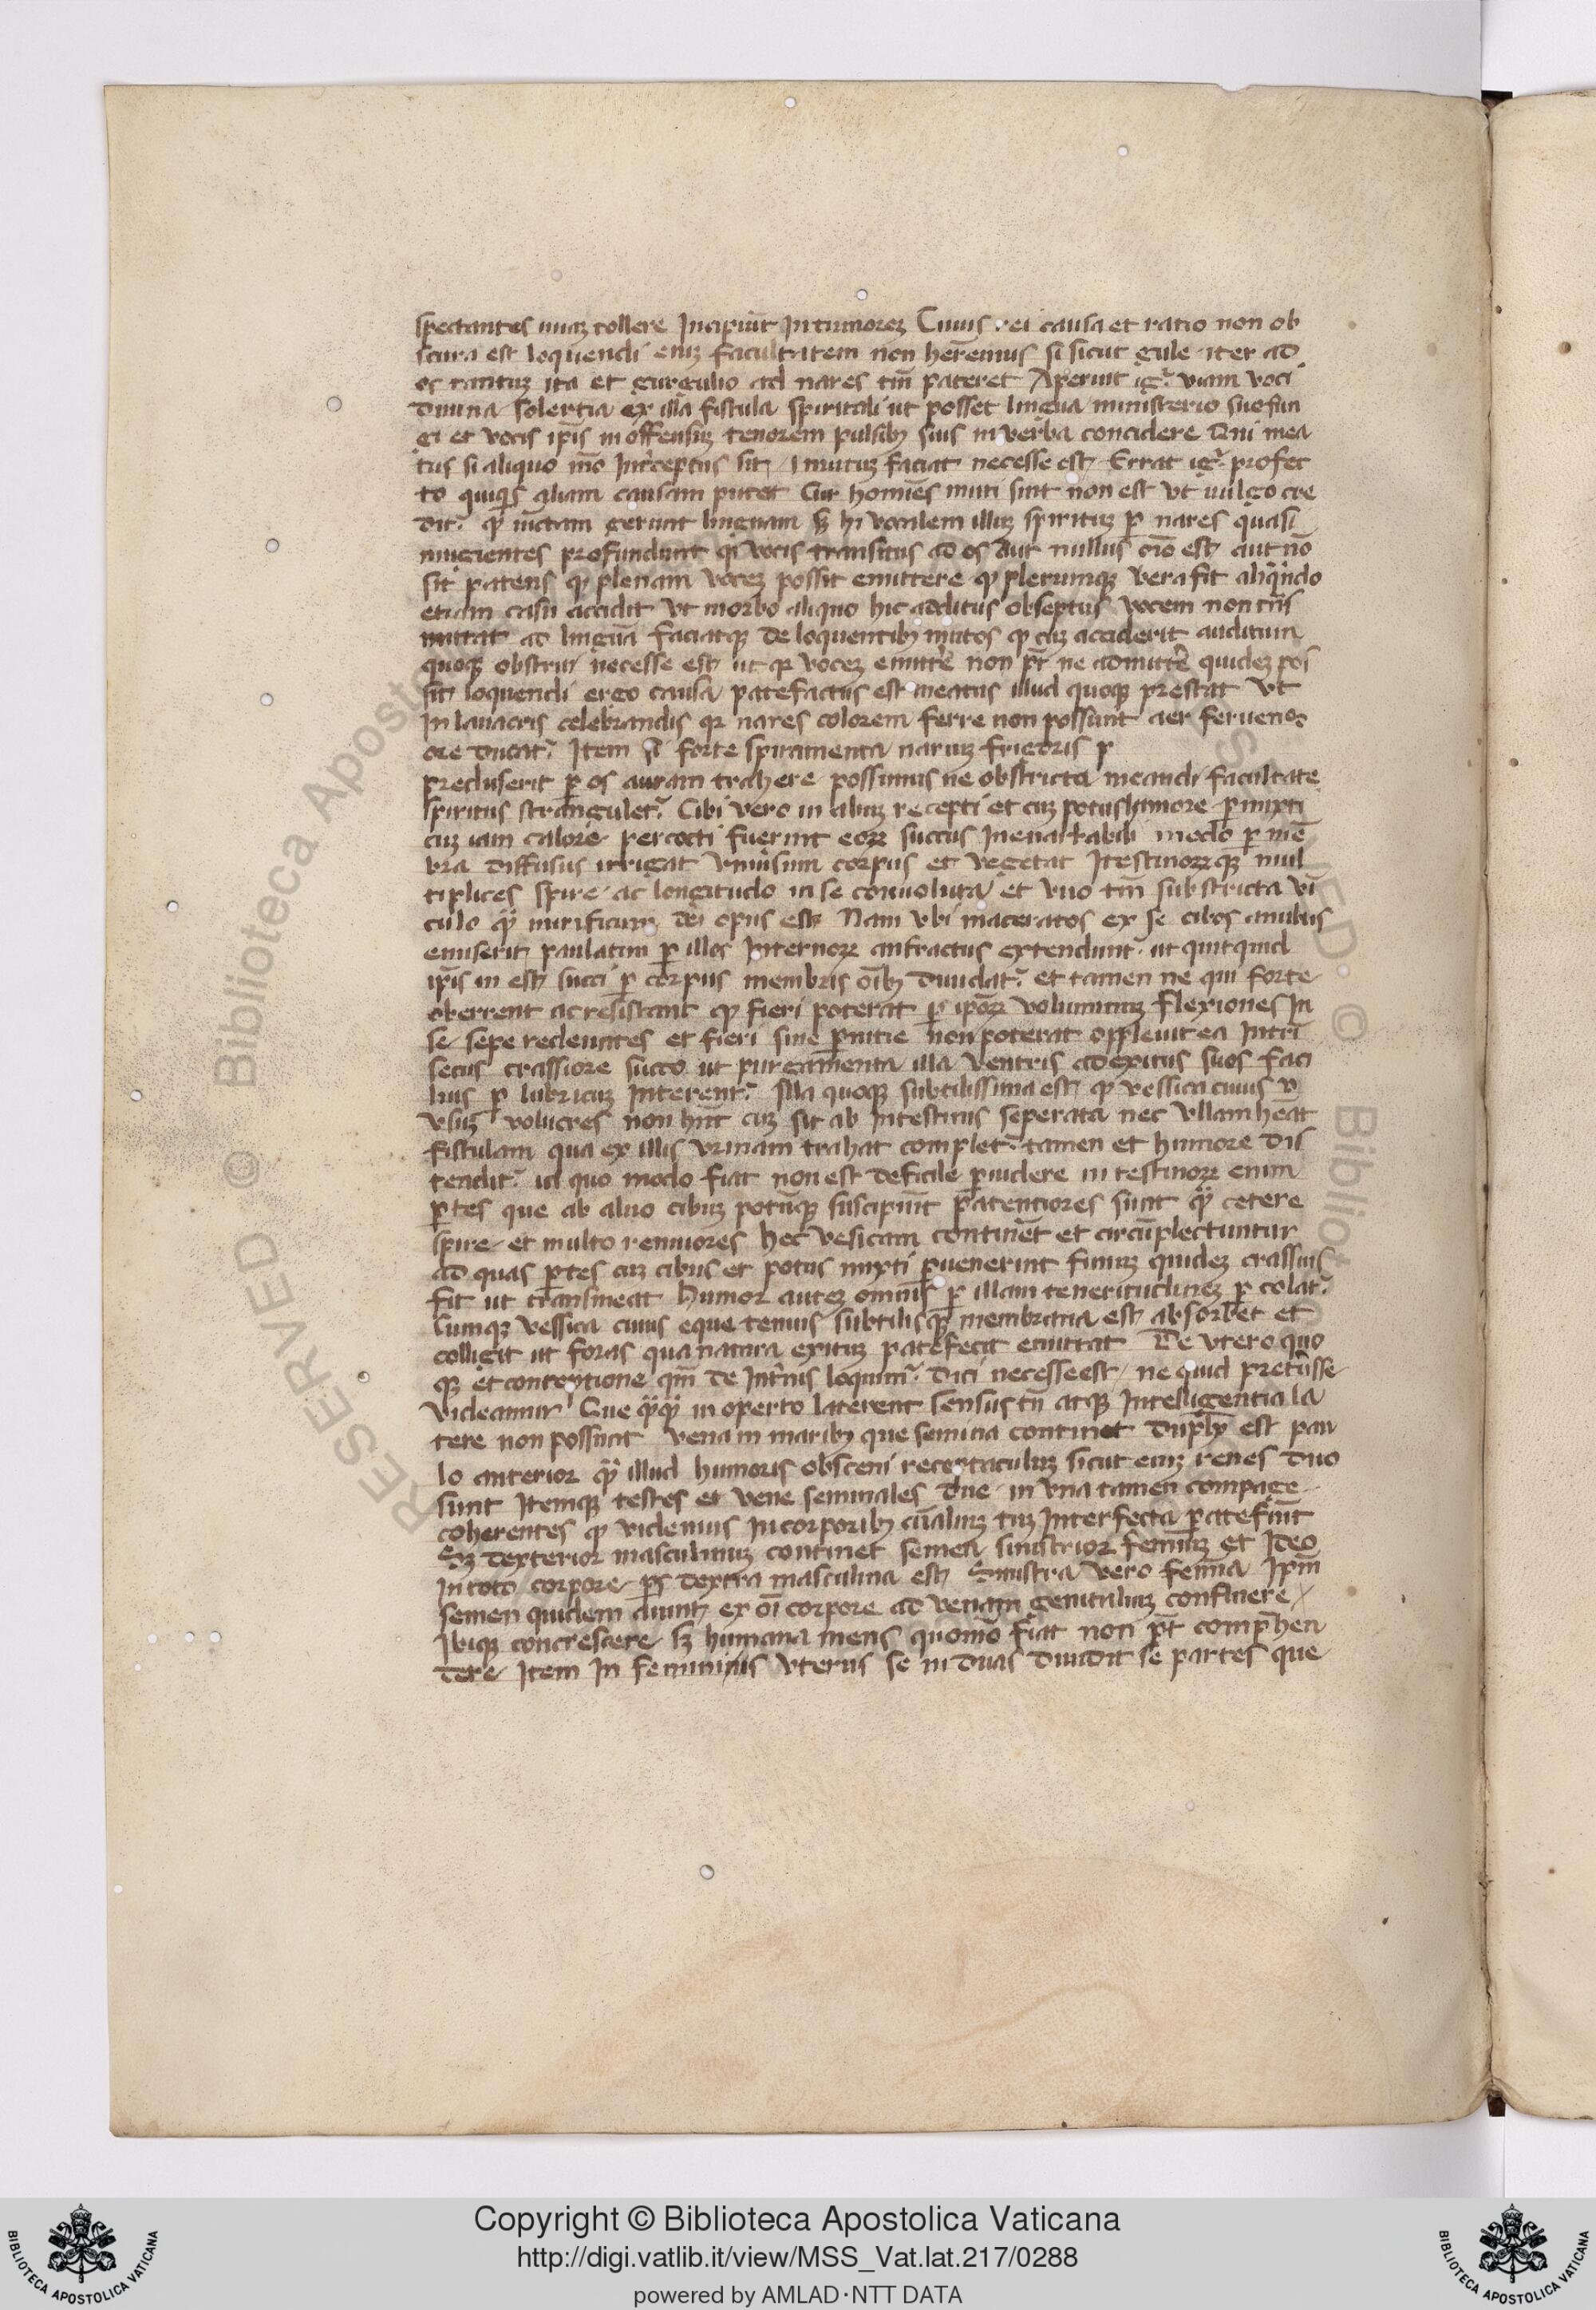 spectantes unaꝫ tollere Incipiūt In tumoreꝫ Cuius rei causa et ratio non ob
scura est loquendi eniꝫ facultatem non herēmus si sicut gule iter ad
os tantuꝫ ita et gurgulio ad nares tm̄ pateret Aperuit igr̄ uiam voci
diuina solertia ex illa fistula spiritali ut posset lingua ministerio suo fun
gi et vocis ip̄is in offensuꝫ tenorem pulsibꝫ suis in verba concidere Qui mea
tus si aliquo mō Int̄ceptus sit mutuꝫ faciat necesse est Errat igr̄ profec
to quiqͥs aliam causam putet Cur homīes muti sint non est vt uulgo cre
ditr̄ ꝙ uīctam gerunt linguam sꝫ hi vocalem illuꝫ spirituꝫ ꝑ nares quasi
mugientes profundunt qͥ vocis transitus ad os aut nullus oīo est aut nō
sit patens ꝙ plenam voceꝫ possit emittere ꝙ plerumqꝫ vera fit aliqn̄do
etiam casu accidit vt morbo aliquo hic additus obseptus vocem non trās
mittat ad linguā faciatqꝫ de loquentibꝫ mutos ꝙ cuꝫ acciderit auditum
quoqꝫ obstrui necesse est ut qꝛ voceꝫ emittē non pt̄ ne admittē quideꝫ pos
sit loquendi ergo causa patefactus est meatus illud quoqꝫ prestat vt
In lauacris celebrandis qꝛ nares colorem ferre non possunt aer feruens
ore ducatr̄ Item si forte spiramenta nariuꝫ frigoris p
precluserit ꝑ os auram trahere possimus ne obstricta meandi facultate
spiritus stranguletr̄ Cibi vero in aluuꝫ recepti et cuꝫ potus humore ꝑmixti
cuꝫ iam calore percocti fuerint eoꝝ succus Inenarrabili modo ꝑ mē
bra diffusus irrigat vniuersum corpus et vegetat Itestinoꝝqꝫ mul
tiplices spire ac longitudo in se conuoluta et vno tm̄ substricta vī
culo qͣ mirificum dei opus est Nam vbi maceratos ex se cibos aluus
emiserit paulatim ꝑ illos Internoꝝ anfractus extenduntr̄ ut quitquid
ip̄is in est succi ꝑ corpus membris oībꝫ diuidatr̄ et tamen ne qui forte
oberrent ac resistant ꝙ fieri poterat ꝑ ipōꝝ voluminuꝫ flexiones In
se sepe redeuntes et fieri sine ꝑnitie non poterat oppleuit ea Intrī
secus crassiore succo ut purgamenta illa ventris ad exitus suos faci
lius ꝑ lubricuꝫ Interentr̄ Illa quoqꝫ subtilissima est ꝙ vessica cuius
vsuꝫ volucres non hn̄t cuꝫ sit ab Intestinis seperata nec vllam hēat
fistulam qua ex illis vrinam trahat completr̄ tamen et humore dis
tenditr̄ id quo modo fiat non est deficile ꝑuidere in testinoꝝ enim
ꝑtes que ab aluo cibuꝫ potūqꝫ suscipiūt patentiores sunt qͣ cetere
spire et multo tenuiores hec vesicam continēt et circūplectuntur
ad quas ꝑtes cuꝫ cibus et potus mixti ꝑuenerint fimuꝫ quideꝫ crassius
fit ut transmeat Humor auteꝫ omnis ꝑ illam teneritudineꝫ ꝑ colatr̄
Cumqꝫ vessica cuius eque tenuis subtilisqꝫ membrana est absorbet et
colligit ut foras qua natura exituꝫ patefecit emittat De vtero quo
qꝫ et conceptione qm̄ de Int̄nis loquimr̄ dici necesse est ne quid pret̄isse
videamur Que qͣqͣ in operto laterent sensus tn̄ atqꝫ Intelligentia la
tere non possunt vena in maribꝫ que semina continet duplꝫ est pau
lo anterior qͣ illud humoris obsceni receptaculuꝫ sicut eniꝫ renes duo
sunt Itemqꝫ testes et vene seminales due in vna tamen compage
coherentes ꝙ videmus In corporibꝫ aīaliuꝫ cuꝫ Interfecta patefiūt
Sꝫ dexterior masculinuꝫ continet semen sinistrior feminiꝫ Et Ideo
In toto corpore ꝑs dextra masculina est Sinistra vero femīna Ipm̄
semen quidem aiunt ex oī corpore ad venam genitaliuꝫ confluere
Ibiqꝫ concrescere sꝫ humana mens quomō fiat non pt̄ comprehen
dere Item In feminis vterus se in duas diuidit se partes que
Copyright © Biblioteca Apostolica Vaticana
http://digi.vatlib.it/view/MSS_Vat.lat.217/0288
powered by AMLAD·NTT DATA
BIBLIOTECA APOSTOLICA VATICANA
BIBLIOTECA APOSTOLICA VATICANA